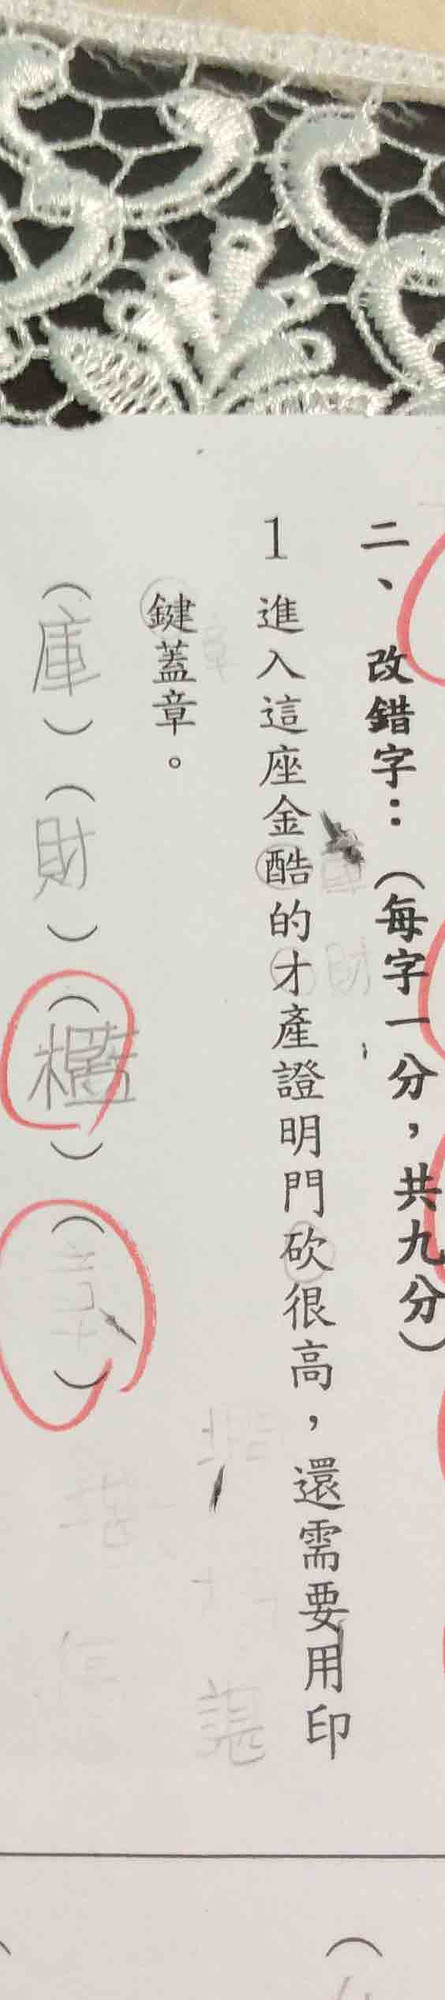 二、改錯字：（每字一分，共九分）
1 進入這座金酷的才產證明門砍很高，還需要用印
鍵蓋章。
（庫）（財）（檻）（　）